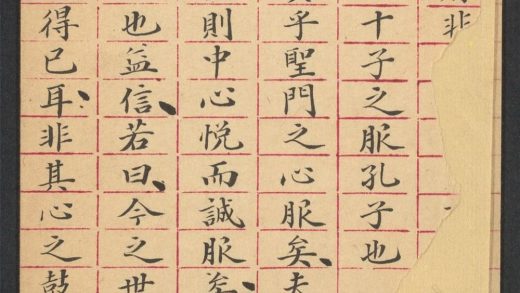 非
十子之服孔子也
乎聖門之心服矣、
則中心悦而誠服矣、
也益信、若曰、今之世
得已耳、非其心之鼓